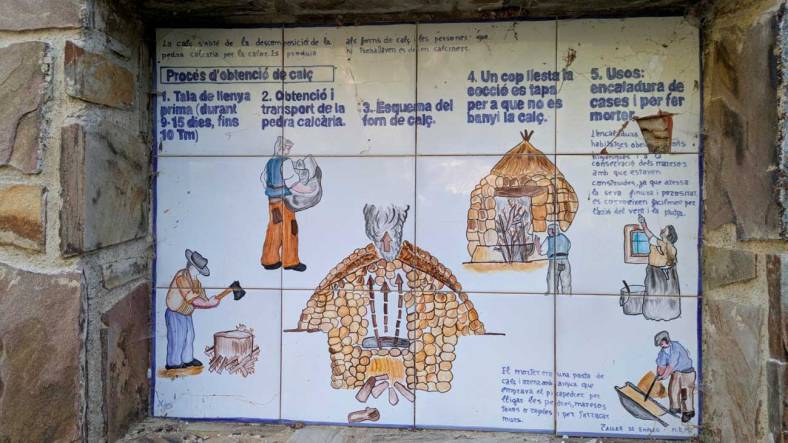 La calç s'obté de la descomposició de la
pedra calcària per la calor. Es produïa
als forns de calç i les persones que
hi treballaven es deien calciners.
Procés d'obtenció de calç
1. Tala de llenya
prima (durant
9-15 dies, fins
10 Tm)
2. Obtenció i
transport de la
pedra calcària.
3. Esquema del
forn de calç.
4. Un cop llesta la
cocció es tapa
per a que no es
banyi la calç.
5. Usos:
encaladura de
cases i per fer
morter.
L'encaladura
habitatges
i a la
consecració dels maresos
amb que estaven
construïdes, ja que atessa
la seva finura i porositat,
es corroeixen facilment per
l'acció del vent i la pluja.
El morter era una pasta de
calç i arena amb aigua que
emprava el picapedrer per
lligar les pedres, maresos
tovos o rajoles i per referçar
murs.
TALLER DE EMPLEO